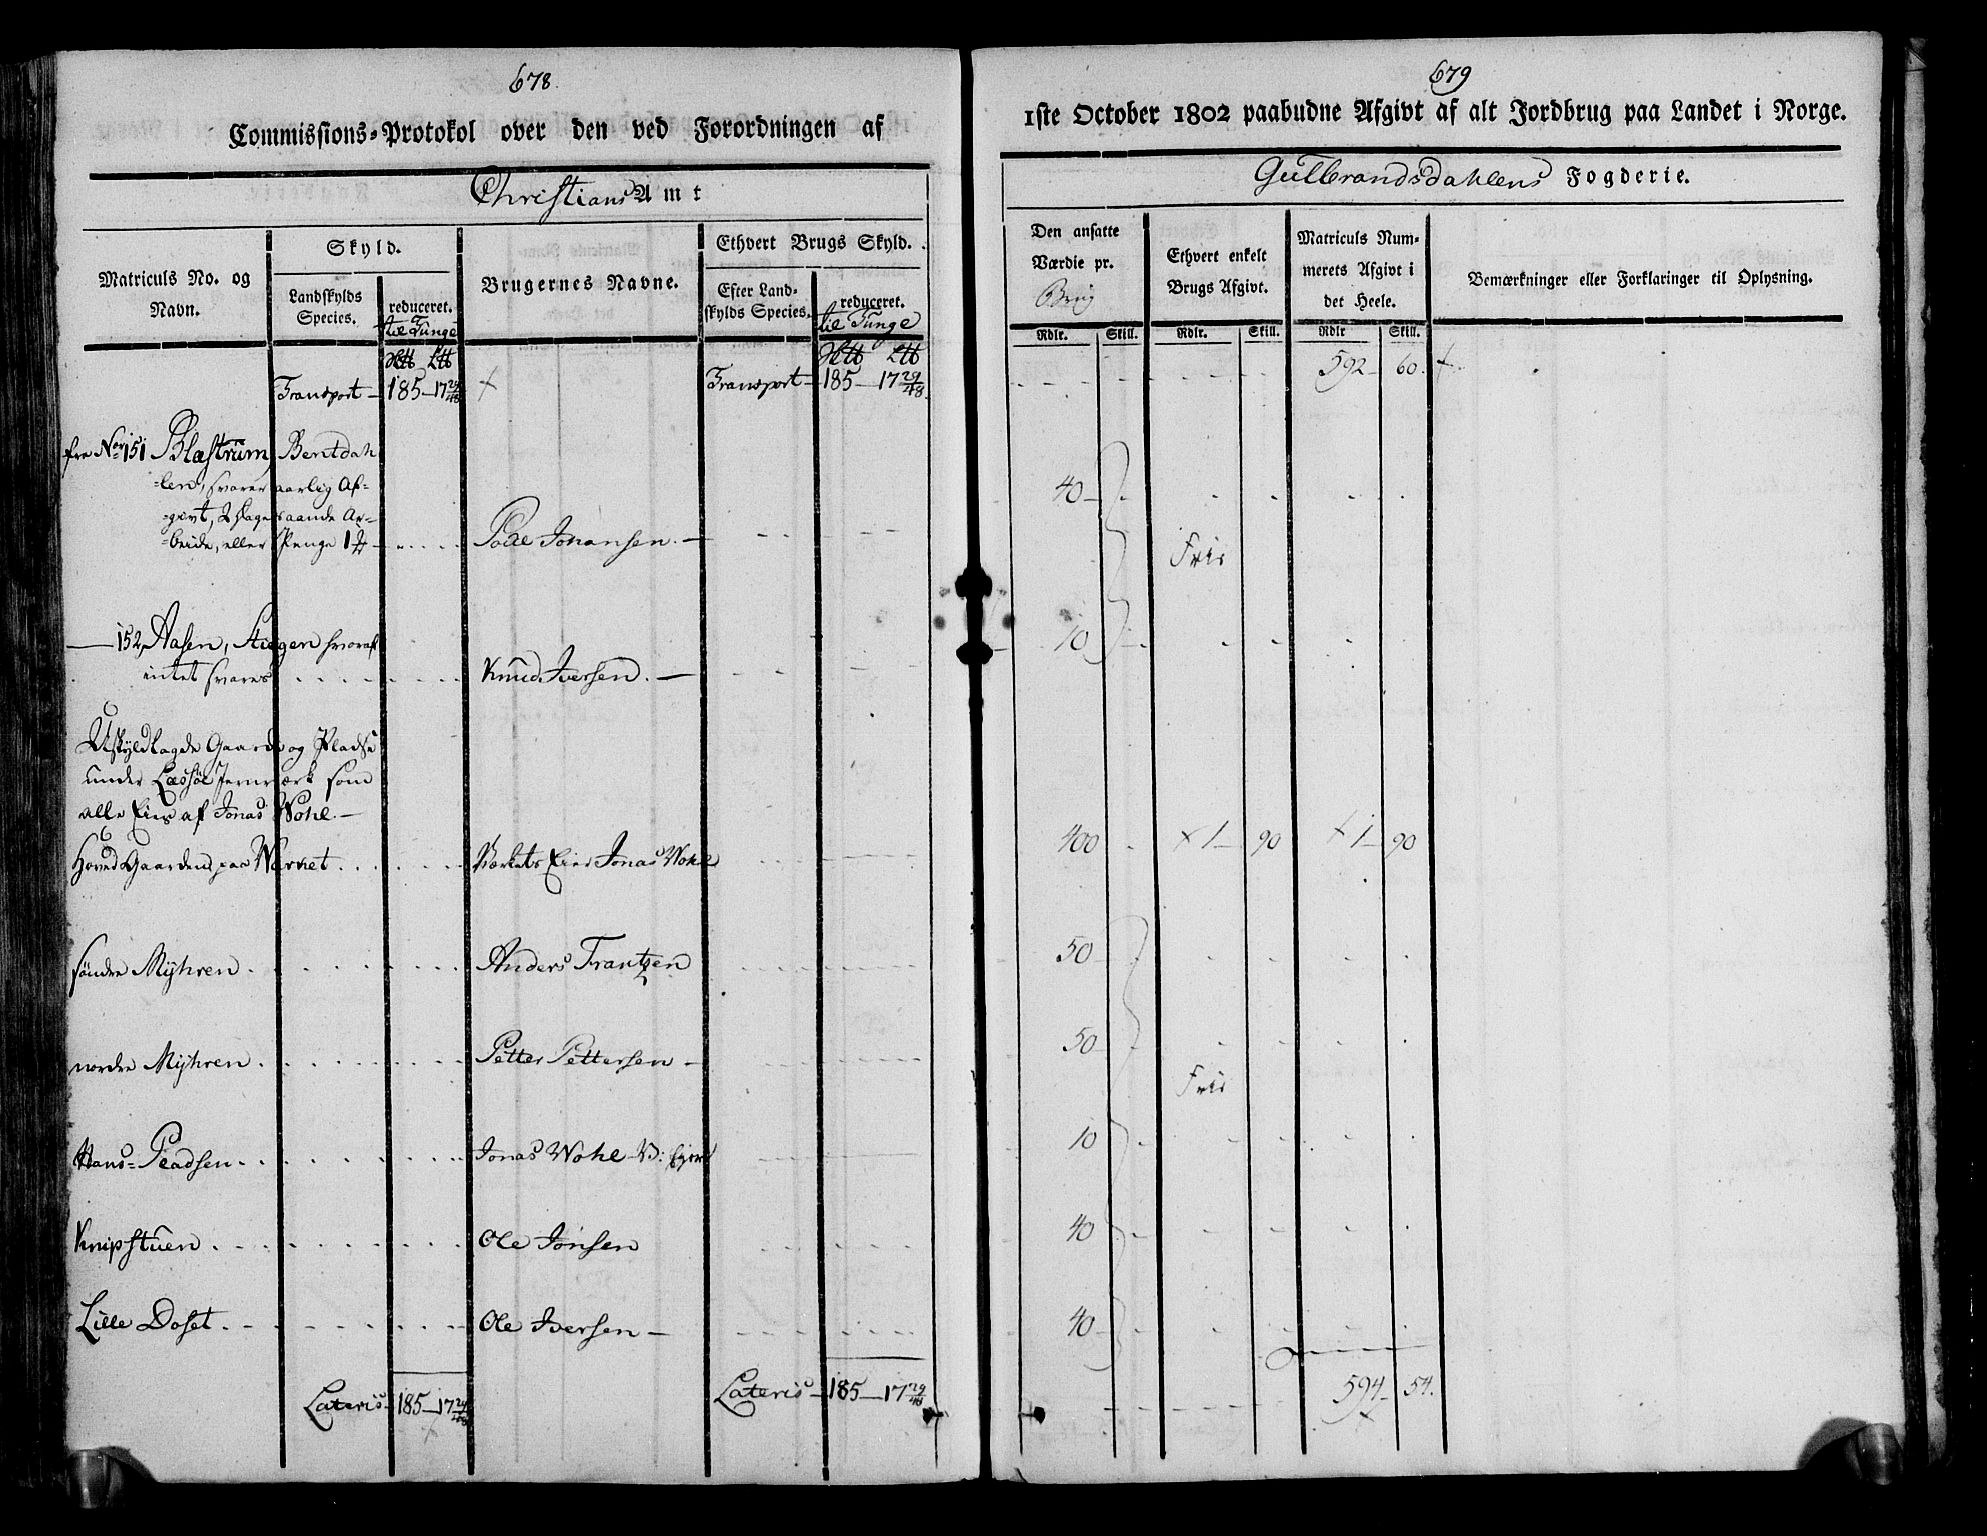 678.
Commissions-Protokol over den ved Forordningen af
Christians Amt
Matriculs No. og Navn.
Skyld.
Landskylds Species.
reduceret.
til Tunge
Brugernes Navne.
Ethvert Brugs Skyld.
Efter Landskylds Species.
reduceret.
til Tunge
Transport — 185 — 17 29/48 Transport — 185 — 17 29/48
fra No 151 Blæstrüm, Bentdah
=len, svarer aarlig Af=
=givt, 2 dages aande Ar=
=beide, eller Penge 1 Povel Johansen. —
— 152, Aasen, Stiegen hvoraf
intet svares Knud Iversen. —
Uskyldlagde Gaarde og Pladse
under Læssøe Jernværk som
alle Eies af Jonas Wohl. —
Hoved Gaarden paa Wærket Værkets Eier Jonas Wohl
søndre Myhren Anders Frantzen
nordre Myhren Petter Pettersen —
Hans=Pladsen Jonas Wohl V: Eier
Knipstuen Ole Jonsen
Lille Doset Ole Iversen —
Lateris — 185 — 17 29/48 Lateris — 185 — 17 29/48
679
1ste October 1802 paabudne Afgivt af alt Jordbrug paa Landet i Norge.
Gulbrandsdahlens Fogderie.
Den ansatte Værdie pr. Brug
Ethvert enkelt Brugs Afgivt.
Matriculs Nummerets Afgivt i det Heele.
Bemærkninger eller Forklaringer til Oplysning.
Rdlr. Skill. Rdlr. Skill. Rdlr Skill.
592 — 60.
40 —
Frie
10
400 1 — 90 1 — 90
50
50
Frie
10
40
40
594 — 54.